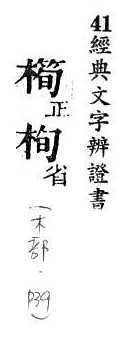 41經典文字辨證書
橁正
栒省
(木部.P39)